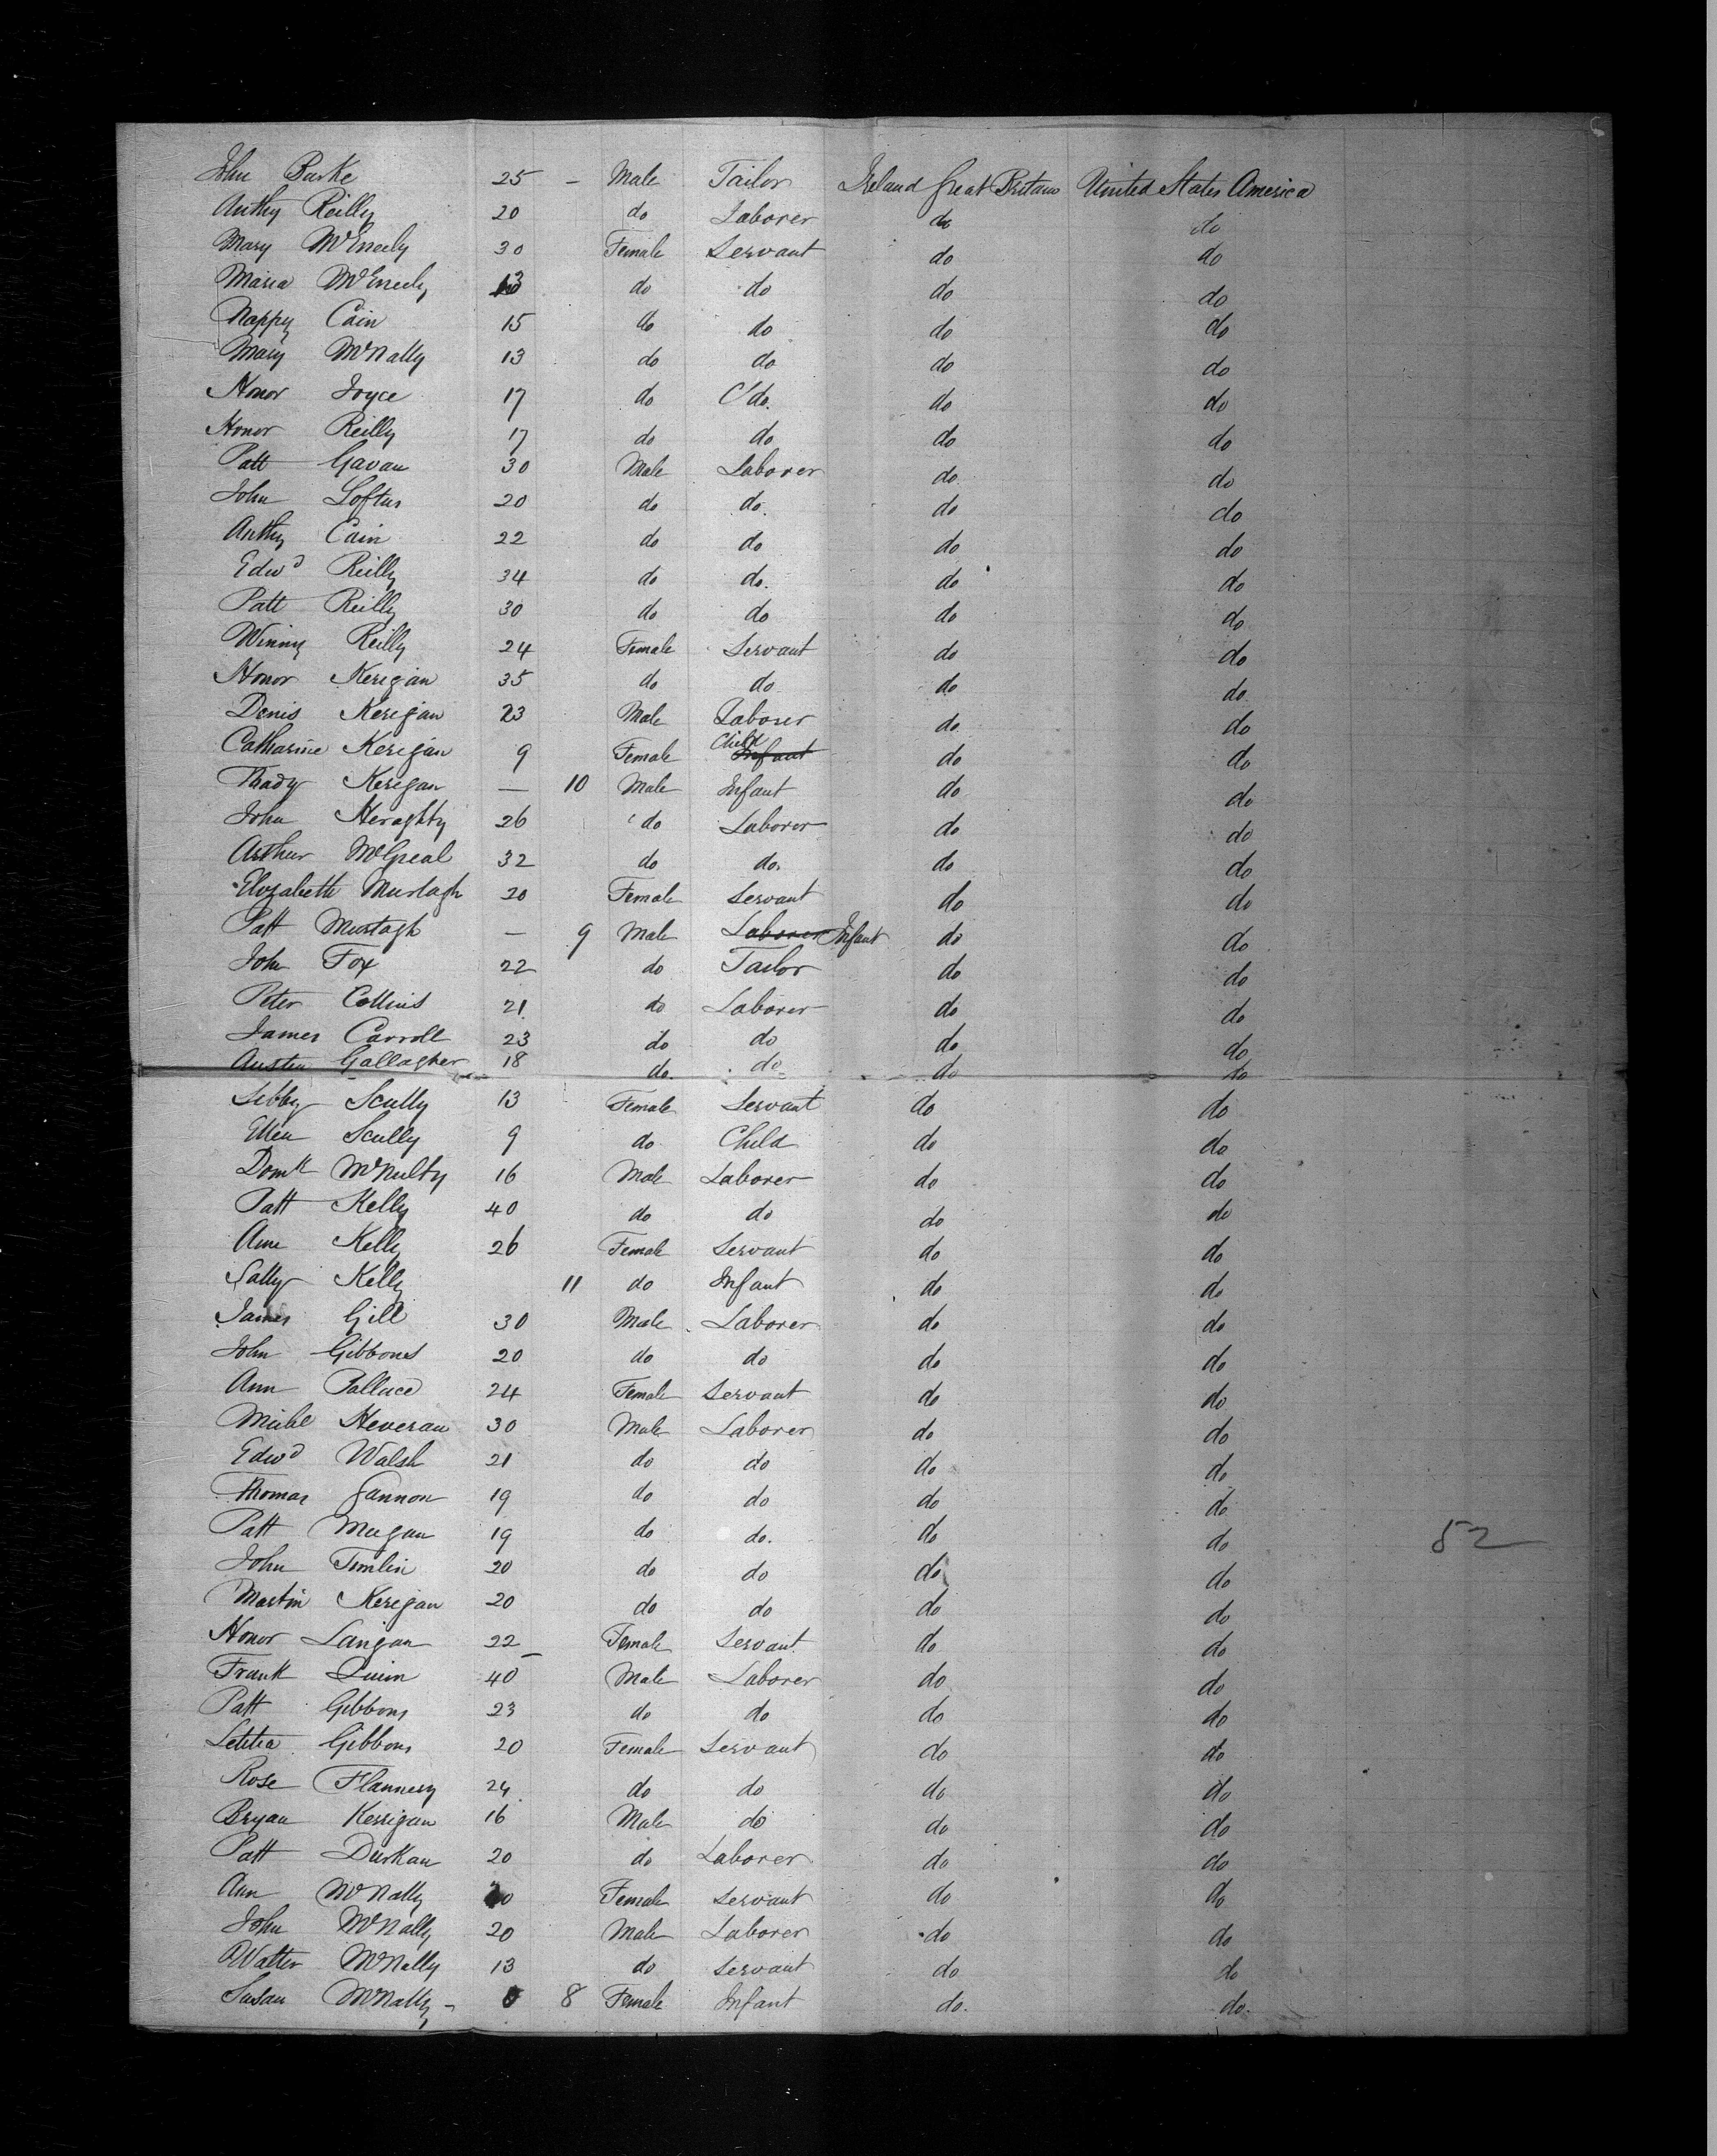 John Burke 25 - Male Tailor Ireland Great Britain United States America
Anthy Reilly 20 do Laborer do do
Mary McEneely 30 Female Servant do do
Maria McEneely 13 do do do do
Nappy Cain 15 do do do do
Mary McNally 13 do do do do
Honor Joyce 17 do do. do do
Honor Reilly 17 do do do do
Patt Gavan 30 Male Laborer do do
John Loftus 20 do do. do do
Anthy Cain 22 do do do do
Edwd Reilly 34 do do. do do
Patt Reilly 30 do do do do
Winny Reilly 24 Female Servant do do
Honor Kerigan 35 do do do do
Denis Kerigan 23 Male Laborer do do
Catharine Kerigan 9 Female Child Infant do do
Thady Kerigan — 10 Male Infant do do
John Heraghty 26 do Laborer do do
Arthur McGreal 32 do do. do do
Elizabeth Murtagh 20 Female Servant do do
Patt Murtagh — 9 Male Laborer Infant do do
John Fox 22 do Tailor do do
Peter Collins 21 do Laborer do do
James Carroll 23 do do do do
Austin Gallagher 18 do. do do do
Sibby Scully 13 Female Servant do do
Ellen Scully 9 do Child do do
Domk McNulty 16 Male Laborer do do
Patt Kelly 40 do do do do
Ann Kelly 26 Female Servant do do
Sally Kelly 11 do Infant do do
James Gill 30 Male Laborer do do
John Gibbons 20 do do do do
Ann 24 Female Servant do do
Michl Heveran 30 Male Laborer do do
Edwd Walsh 21 do do do do
Thomas Gannon 19 do do do do
Patt Mugan 19 do do. do do 52
John Timlin 20 do do do do
Martin Kerigan 20 do do do do
Honor Langan 22 Female Servant do do
Frank Quin 40 Male Laborer do do
Patt Gibbons 23 do do do do
Letitia Gibbons 20 Female Servant do do
Rose Flannery 24 do do do do
Bryan Kerrigan 16 Male do do do
Patt Durkan 20 do Laborer do do
Ann McNally Female Servant do do
John McNally 20 Male Laborer do do
Walter McNally 13 do Servant do do
Susan McNally - 8 Female Infant do. do.